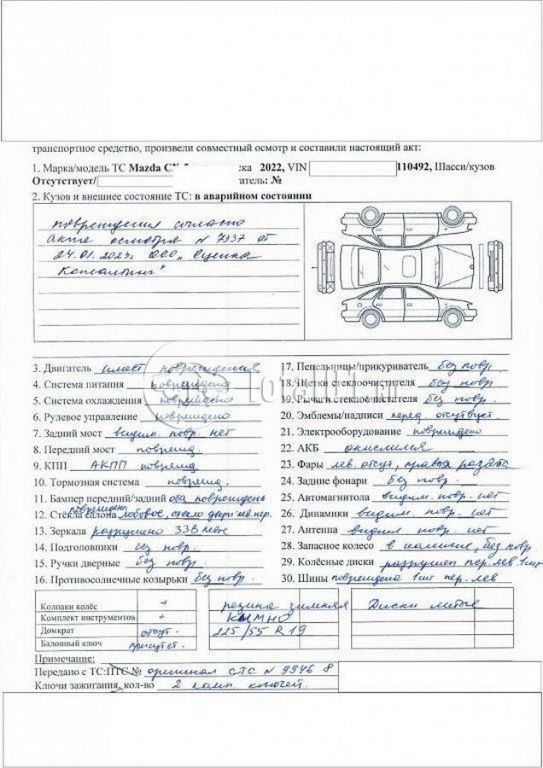 транспортное средство, произвели совместный осмотр и составили настоящий акт:
1. Марка/модель ТС Mazda CX 2022, VIN 110492, Шасси/кузов
Отсутствует/ №
2. Кузов и внешнее состояние ТС: в аварийном состоянии
повреждения согласно
акта осмотра N 7937 от
24.01.2023г. ООО „Оценка
Консалтинг"
3. Двигатель имеет повреждения
4. Система питания повреждено
5. Система охлаждения повреждено
6. Рулевое управление повреждено
7. Задний мост видим. повр. нет
8. Передний мост поврежд
9. КПП АКПП поврежд
10. Тормозная система поврежд.
11. Бампер передний/задний оба повреждены
повреждены
12. Стёкла салона лобовое, стекло двери лев пер.
13. Зеркала разрушено ЗЗВ левое
14. Подголовники без повр.
15. Ручки дверные без повр.
16. Противосолнечные козырьки без повр.
17. Пепельницы/прикуриватель без повр.
18. Щетки стеклоочистителя без повр
19. Рычаги стеклоочистителя без повр.
20. Эмблемы/надписи перед. отсутвует
21. Электрооборудование повреждено
22. АКБ окислился
23. Фары лев. отсут, правая разбита
24. Задние фонари без повр.
25. Автомагнитола видим. повр. нет
26. Динамики видим. повр. нет
27. Антенна видим. повр. нет
28. Запасное колесо в наличие, без повр.
29. Колёсные диски разрушен пер. лев 1шт
30. Шины повреждена 1шт пер. лев
Колпаки колёс
Комплект инструментов +
Домкрат отсут.
Балонный ключ присутет.
резина зимняя
КУМНО
225/55 R 19
Диски литые
Примечание:
Передано с ТС:ПТС № оригинал СТС N 9946 8
Ключи зажигания, кол-во 2 комп. ключей.